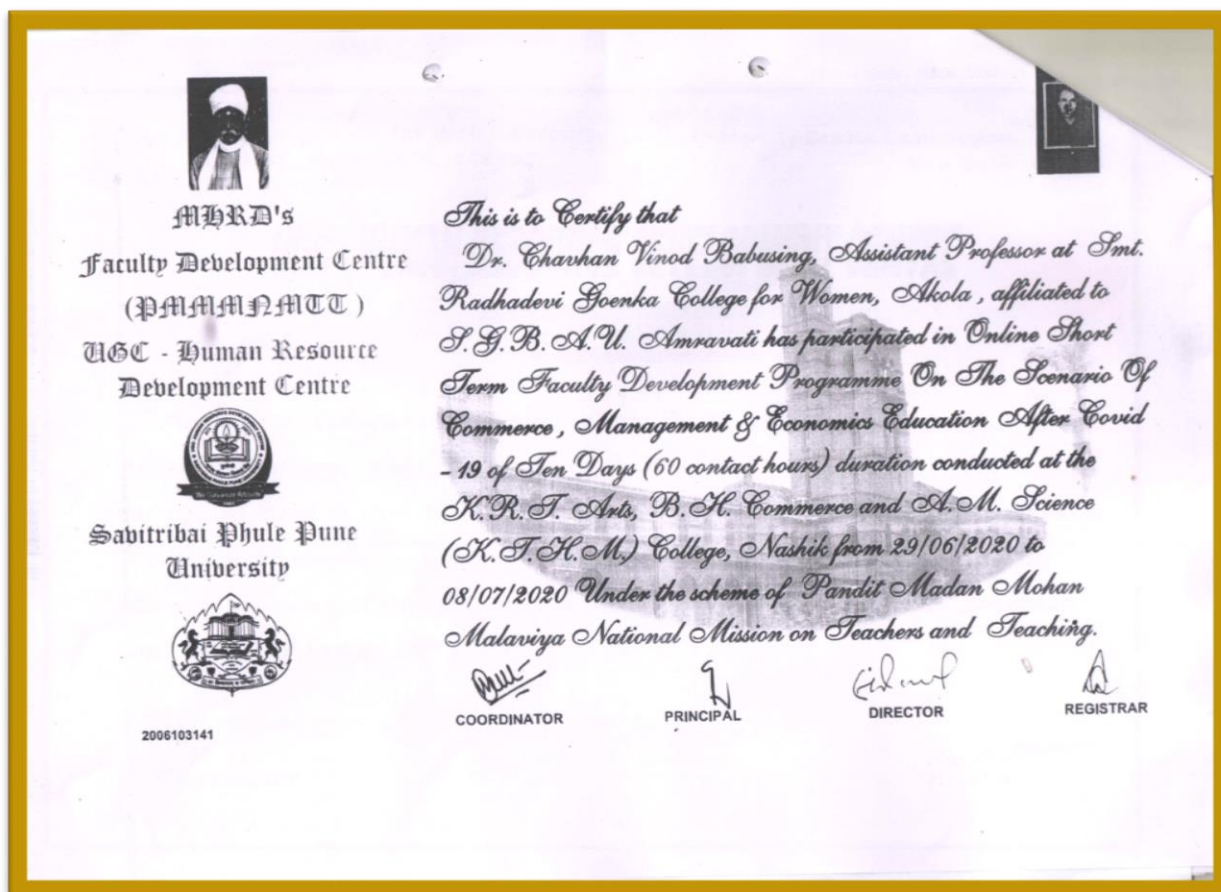 MHRD's
Faculty Development Centre
(PMMMNMTT )
UGC - Human Resource
Development Centre
Savitribai Phule Pune
University
2006103141
This is to Certify that
Dr. Chavhan Vinod Babusing, Assistant Professor at Smt.
Radhadevi Goenka College for Women, Akola , affiliated to
S.G.B. A.U. Amravati has participated in Online Short
Term Faculty Development Programme On The Scenario Of
Commerce , Management & Economics Education After Covid
- 19 of Ten Days (60 contact hours) duration conducted at the
K.R.T. Arts, B.H. Commerce and A.M. Science
(K.T.H.M.) College, Nashik from 29/06/2020 to
08/07/2020 Under the scheme of Pandit Madan Mohan
Malaviya National Mission on Teachers and Teaching.
COORDINATOR
PRINCIPAL
DIRECTOR
REGISTRAR